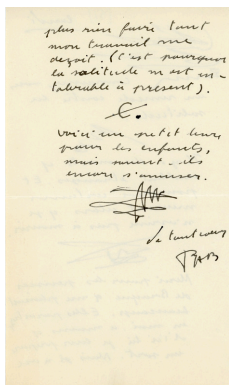 plus rien faire tant
mon travail me
deçoit. (C'est pourquoi
la solitude m'est in-
tolerable à present).
Voici un petit livre
pour les enfants,
mais savent-ils
encore s'amuser.
de tout coeur